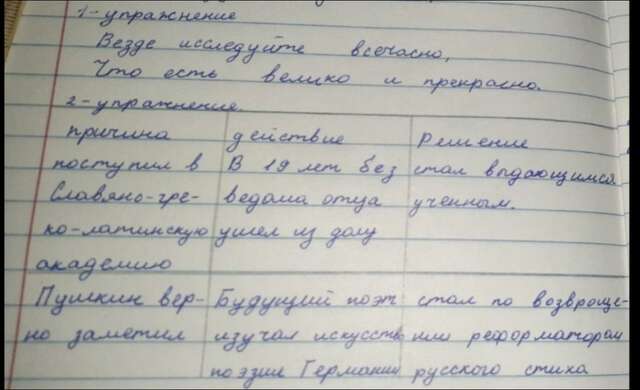 1-упражнение
Везде исследуйте всечасно,
Что есть велико и прекрасно.
2-упражнение.
причина действие Решение
поступил в В 19 лет без стал выдающимся
Славяно-гре- ведома отца ученным.
ко-латинскую ушел из дому
академию
Пушкин вер- Будущий поэт стал по возвроще-
но заметил изучал искусство нии реформатором
поэзие Германии русского стиха